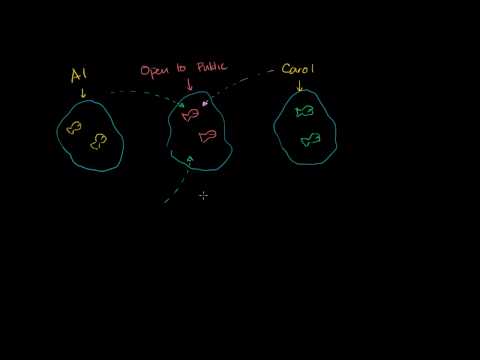 Al
Open to Public
Carol